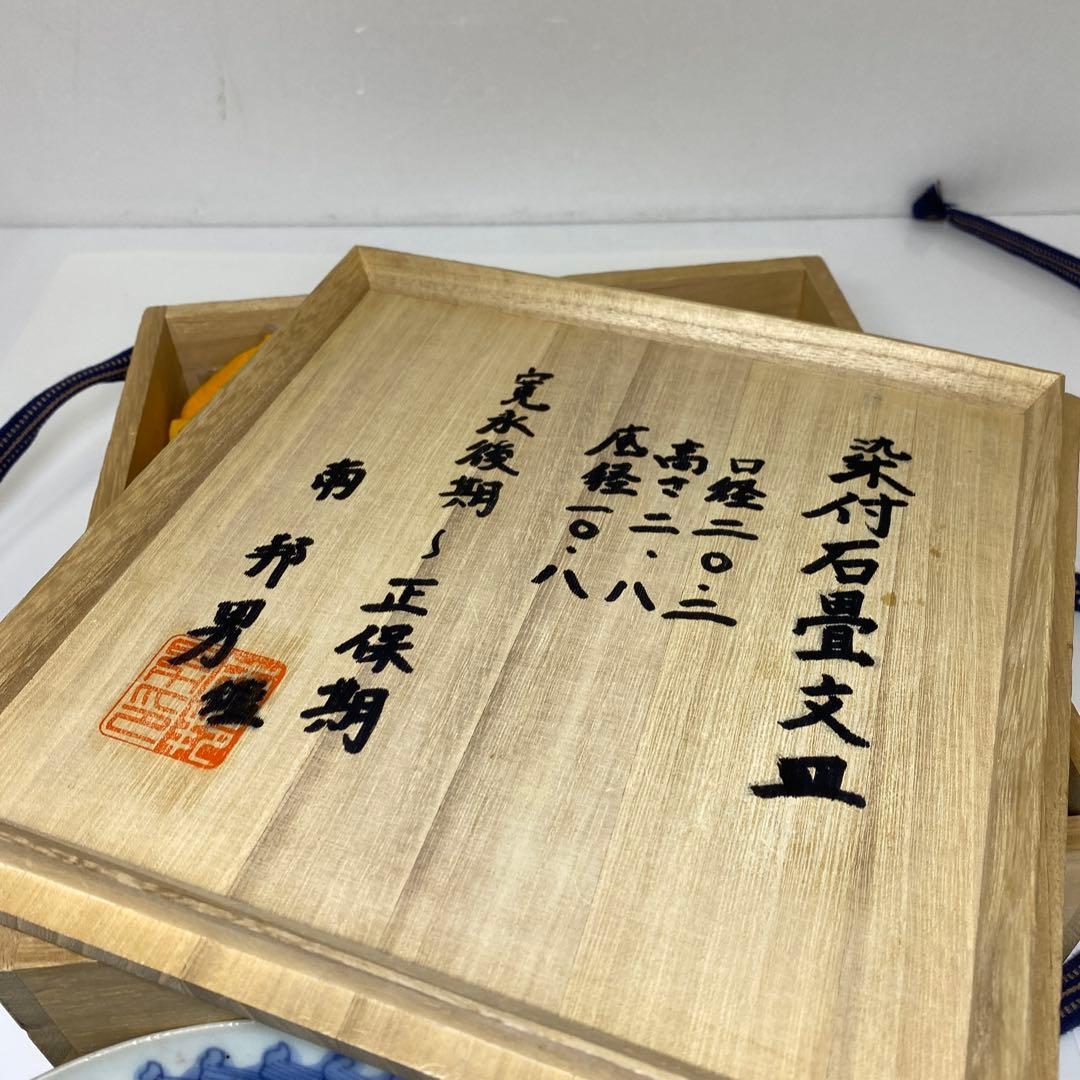 染付石畳文皿
口経二〇.二
高さ二.八
底経一〇.八
寛永後期〜正保期
南邦男